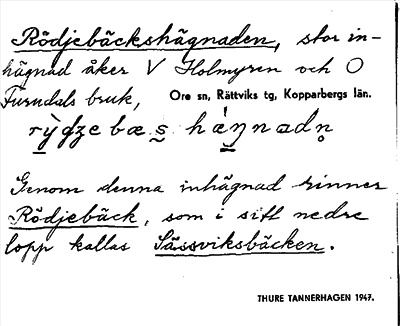 Rödjebäckshägnaden, stor in-
hägnad åker V Holmyren och O
Furudals bruk, Ore sn, Rättviks tg, Kopparbergs län.
Genom denna inhägnad rinner
Rödjebäck, som i sitt nedre
lopp kallas Sässviksbäcken.
THURE TANNERHAGEN 1947.